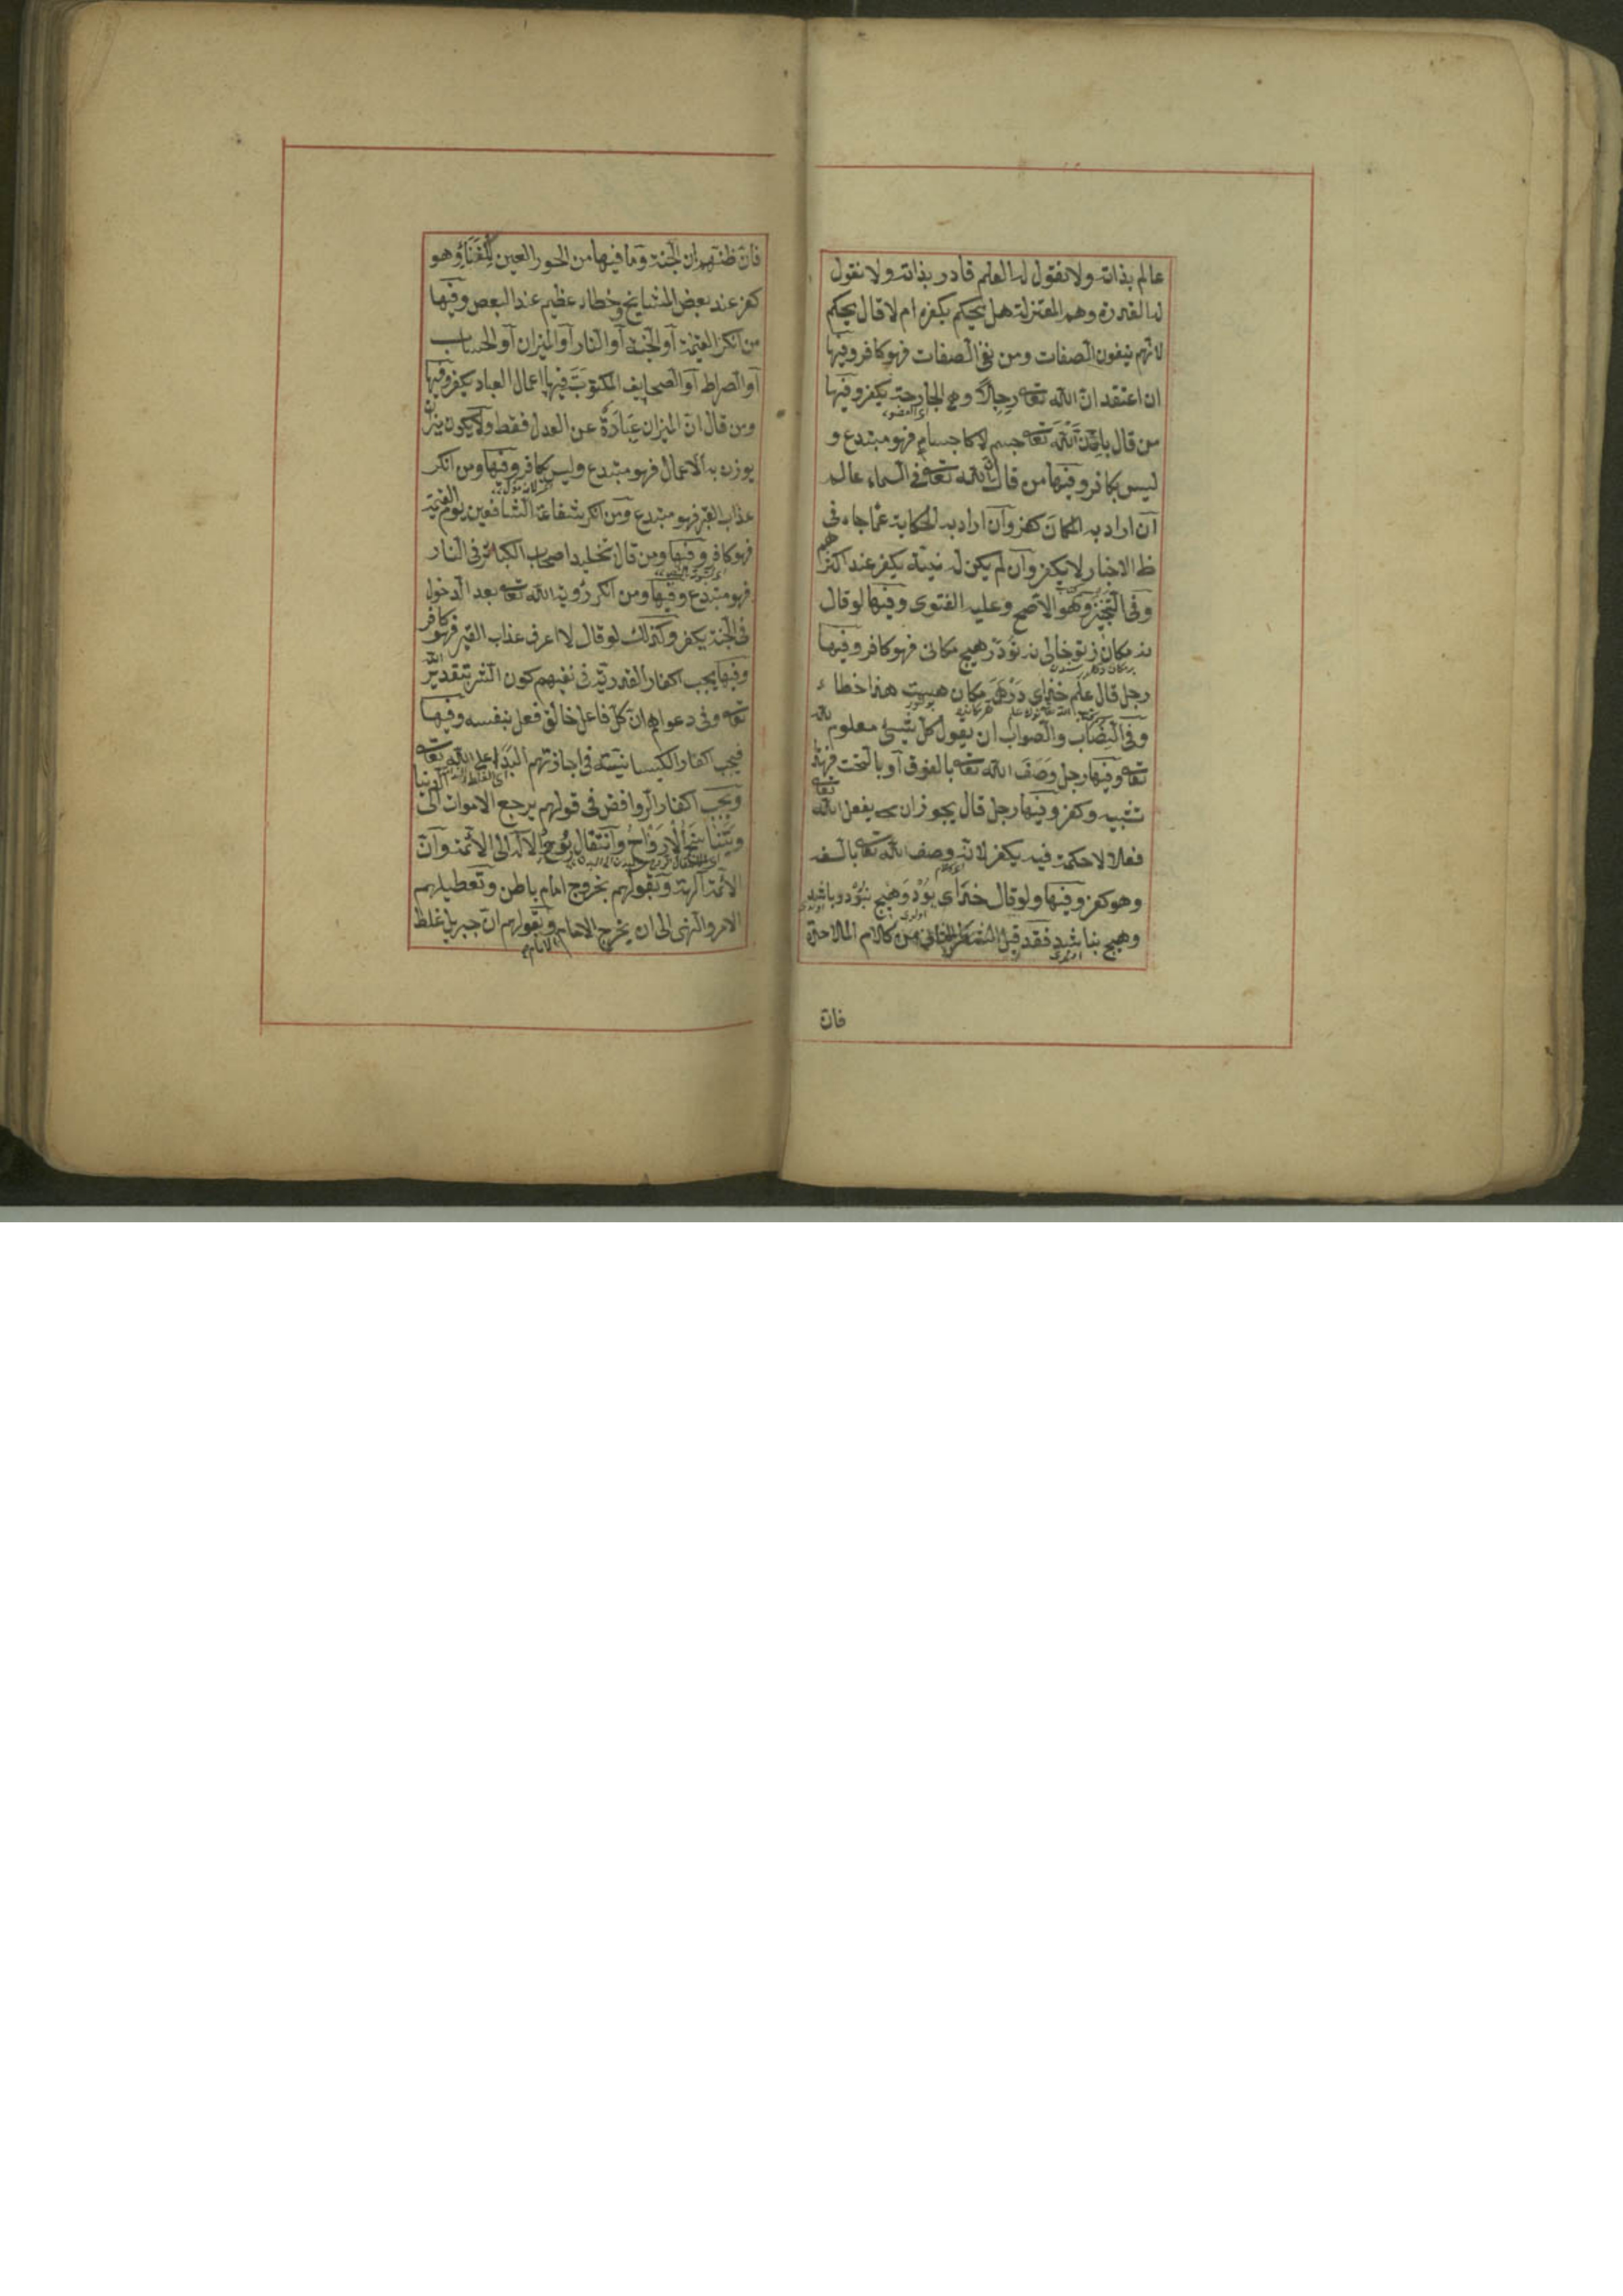 عالم بذاته ولا نقول له العلم قادر بذاته ولا نقول
له القدرة وهم المعتزلة هل يحكم بكفره ام لا قال يحكم
لانهم ينفون الصفات ومن نفى الصفات فهو كافر وفيها
ان اعتقد ان الله تعالى رجلا وهى الجارحة يكفر وفيها
اى العضو
من قال بان الله تعالى جسم لا كاجسام فهو مبتدع و
ليس بكافر وفيها من قال ان الله تعالى فى السماء عالم
ان اراد به المكان كفر وان اراد به الحكاية عما جاء فى
ظ الاخبار لا يكفر وان لم يكن له نية يكفر عند اكثرهم
وفى التجنيز وهو الاصح وعليه الفتوى وفيها لو قال
نه مكان ز تو خالى نه تو در هيچ مكانى فهو كافر وفيها
رجل قال علم خداى در هر مكان هست هذا خطاء
وفى النصاب والصواب ان يقول كل شىء معلوم لله
تعالى وفيها رجل وصف الله تعالى بالفوق او بالتحت فهذا
تشبيه وكفر وفيها رجل قال يجوز ان يفعل الله تعالى
فعلا لا حكمة فيه يكفر لانه وصف الله تعالى بالسفه
وهو كفر وفيها ولو قال خداى بود وهيچ نبود وباشد
وهيچ نباشد فقد قيل الشطر الثانى من كلام الملاحدة
فان
فان ظنهم ان الجنة وما فيها من الحور العين للفناء وهو
كفر عند بعض المشايخ وخطاء عظيم عند البعض وفيها
من انكر القيمة او الجنة او النار او الميزان او الحساب
او الصراط او الصحايف المكتوبة فيها اعمال العباد يكفر وفيها
ومن قال ان الميزان عبارة عن العدل فقط ولا يكون ميزان
يوزن به الاعمال فهو مبتدع وليس بكافر وفيها ومن انكر
عذاب القبر فهو مبتدع ومن انكر شفاعة الشافعين يوم القيمة
فهو كافر وفيها ومن قال بتخليد اصحاب الكبائر فى النار
فهو مبتدع وفيها ومن انكر رؤية الله تعالى بعد الدخول
فى الجنة يكفر وكذلك لو قال لا اعرف عذاب القبر فهو كافر
وفيها يجب اكفار القدرية فى نفيهم كون الشر بتقدير الله
تعالى وفى دعواهم ان كل فاعل خالق فعل بنفسه وفيها
فيجب اكفار الكيسانية فى اجازتهم البداء على الله تعالى
ويجب اكفار الروافض فى قولهم يرجع الاموات الى الدنيا
وبتناسخ الارواح وانتقال روح الاله الى الائمة وان
الائمة آلهة وبقولهم بخروج امام باطن وتعطيلهم
الامر والنهى الى ان يخرج الامام وبقولهم ان جبريل غلط